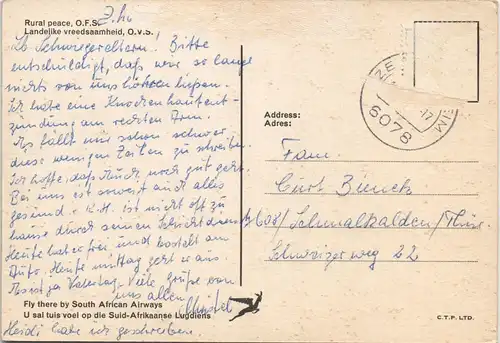 Rural peace, O.F.S.
Landelike vreedsaamheid, O.V.S.
Lb Schwiegereltern! Bitte
entschuldigt, daß wir so lange
nichts von uns hören ließen.
Ich habe eine Knochenhautent-
zündung am rechten Arm.
Es fällt mir schon schwer
diese wenigen Zeilen zu schreiben.
Ich hoffe, daß Euch noch gut geht.
Bei uns ist soweit auch alles
gesund. K.H. ist nicht oft zu
hause durch seinen Schichtdienst
Heute hat er frei und bastelt am
Auto. Heute mittag geht er aus.
ist ja Vatertag. Viele Grüße von
uns allen
Heidi habe ich geschrieben.
Fly there by South African Airways
U sal tuis voel op die Suid-Afrikaanse Lugdiens
Address:
Adres:
Fam.
Curt
608 Schmalkalden/Thür
weg 22
6078
C.T.P. LTD.